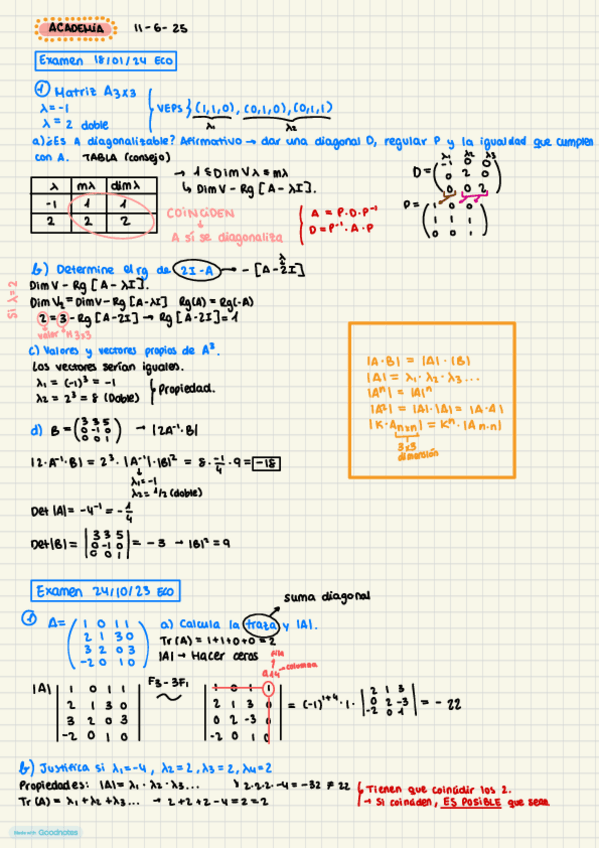 ACADEMIA 11-6-25
Examen 18/01/24 ECO
① Matriz A3x3
λ=-1
λ=2 doble
VEPS {(1,1,0), (0,1,0), (0,1,1)
λ1 λ2
a) ¿Es A diagonalizable? Afirmativo → dar una diagonal D, regular P y la igualdad que cumplen
con A. TABLA (consejo)
→ 1 ≤ Dim Vλ = mλ
↳ Dim V - Rg [A-λI].
λ mλ dimλ
-1 1 1
2 2 2
COINCIDEN
→ A sí se diagonaliza
A = P·D·P⁻¹
D = P⁻¹·A·P
λ1 λ2 λ3
D = (-1 0 0
0 2 0
0 0 2)
P = (1 0 0
1 1 1
0 0 1)
b) Determine el rg de 2I-A → -[A-2I]
λ
Si λ=2
Dim V - Rg [A-λI].
Dim V2 = Dim V - Rg [A-λI] Rg(A) = Rg(-A)
2 = 3 - Rg [A-2I] → Rg [A-2I] = 1
valor M 3x3
c) Valores y vectores propios de A³.
Los vectores serían iguales.
λ1 = (-1)³ = -1
λ2 = 2³ = 8 (Doble)
Propiedad.
|A·B| = |A|·|B|
|A| = λ1·λ2·λ3...
|Aⁿ| = |A|ⁿ
|A²| = |A|·|A| = |A·A|
|K·A nxn| = Kⁿ·|A n·n|
3x3
dimensión
d) B = (3 3 5
0 -1 0
0 0 1) → |2A⁻¹·B|
|2·A⁻¹·B| = 2³·|A⁻¹|·|B|² = 8·-1/4·9 = -18
λ1=-1
λ2=1/2 (doble)
Det |A| = -4⁻¹ = -1/4
Det |B| = |3 3 5
0 -1 0
0 0 1| = -3 → |B|² = 9
Examen 24/10/23 ECO
suma diagonal
① A = (1 0 1 1
2 1 3 0
3 2 0 3
-2 0 1 0)
a) Calcula la traza y |A|.
Tr(A) = 1+1+0+0 = 2
|A| → Hacer ceros
fila
a14 → columna
|A| |1 0 1 1
2 1 3 0
3 2 0 3
-2 0 1 0|
F3-3F1
|1 0 1 1
2 1 3 0
0 2 -3 0
-2 0 1 0|
= (-1)¹⁺⁴·1·|2 1 3
0 2 -3
-2 0 1| = -22
b) Justifica si λ1=-4, λ2=2, λ3=2, λ4=2
Propiedades: |A| = λ1·λ2·λ3... → 2·2·2·-4 = -32 ≠ 22
Tr(A) = λ1+λ2+λ3... → 2+2+2-4 = 2 = 2
Tienen que coincidir los 2.
→ Si coinciden, ES POSIBLE que sean
Made with Goodnotes